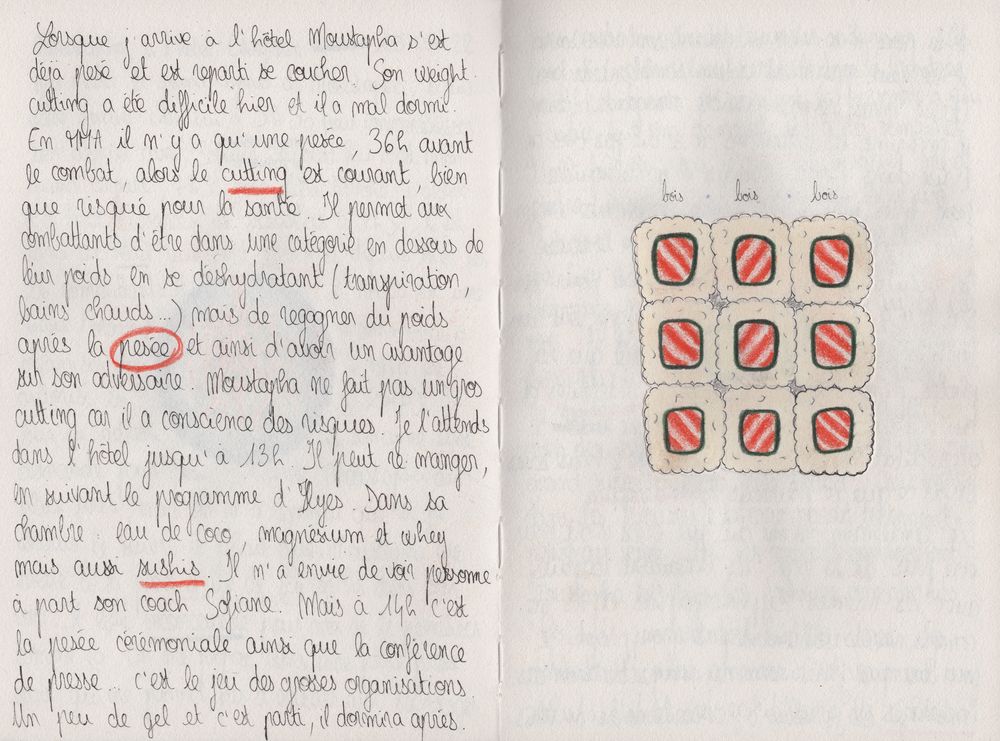 Lorsque j'arrive à l'hôtel Moustapha s'est
déjà pesé et est reparti se coucher. Son weight-
cutting a été difficile hier et il a mal dormi.
En MMA il n'y a qu'une pesée, 36h avant
le combat, alors le cutting est courant, bien
que risqué pour la santé. Il permet aux
combattants d'être dans une catégorie en dessous de
leur poids en se déshydratant (transpiration
bains chauds...) mais de regagner du poids
après la pesée et ainsi d'avoir un avantage
sur son adversaire. Moustapha ne fait pas un gros
cutting car il a conscience des risques. Je l'attends
dans l'hôtel jusqu'à 13h. Il peut re manger,
en suivant le programme d'Ilyes. Dans sa
chambre : eau de coco, magnésium et whey
mais aussi sushis. Il n'a envie de voir personne
à part son coach Sofiane. Mais à 14h c'est
la pesée cérémoniale ainsi que la conférence
de presse... c'est le jeu des grosses organisations.
Un peu de gel et c'est parti, il dormira après.
bois . bois . bois